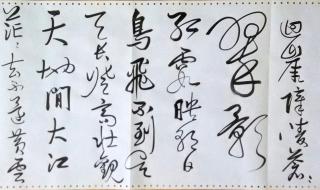 迴崖嶂凌蒼〻
翠影
紅霞映朝日
鳥飛不到吳
天長登高壯觀
天地間大江
茫〻去不還黃雲